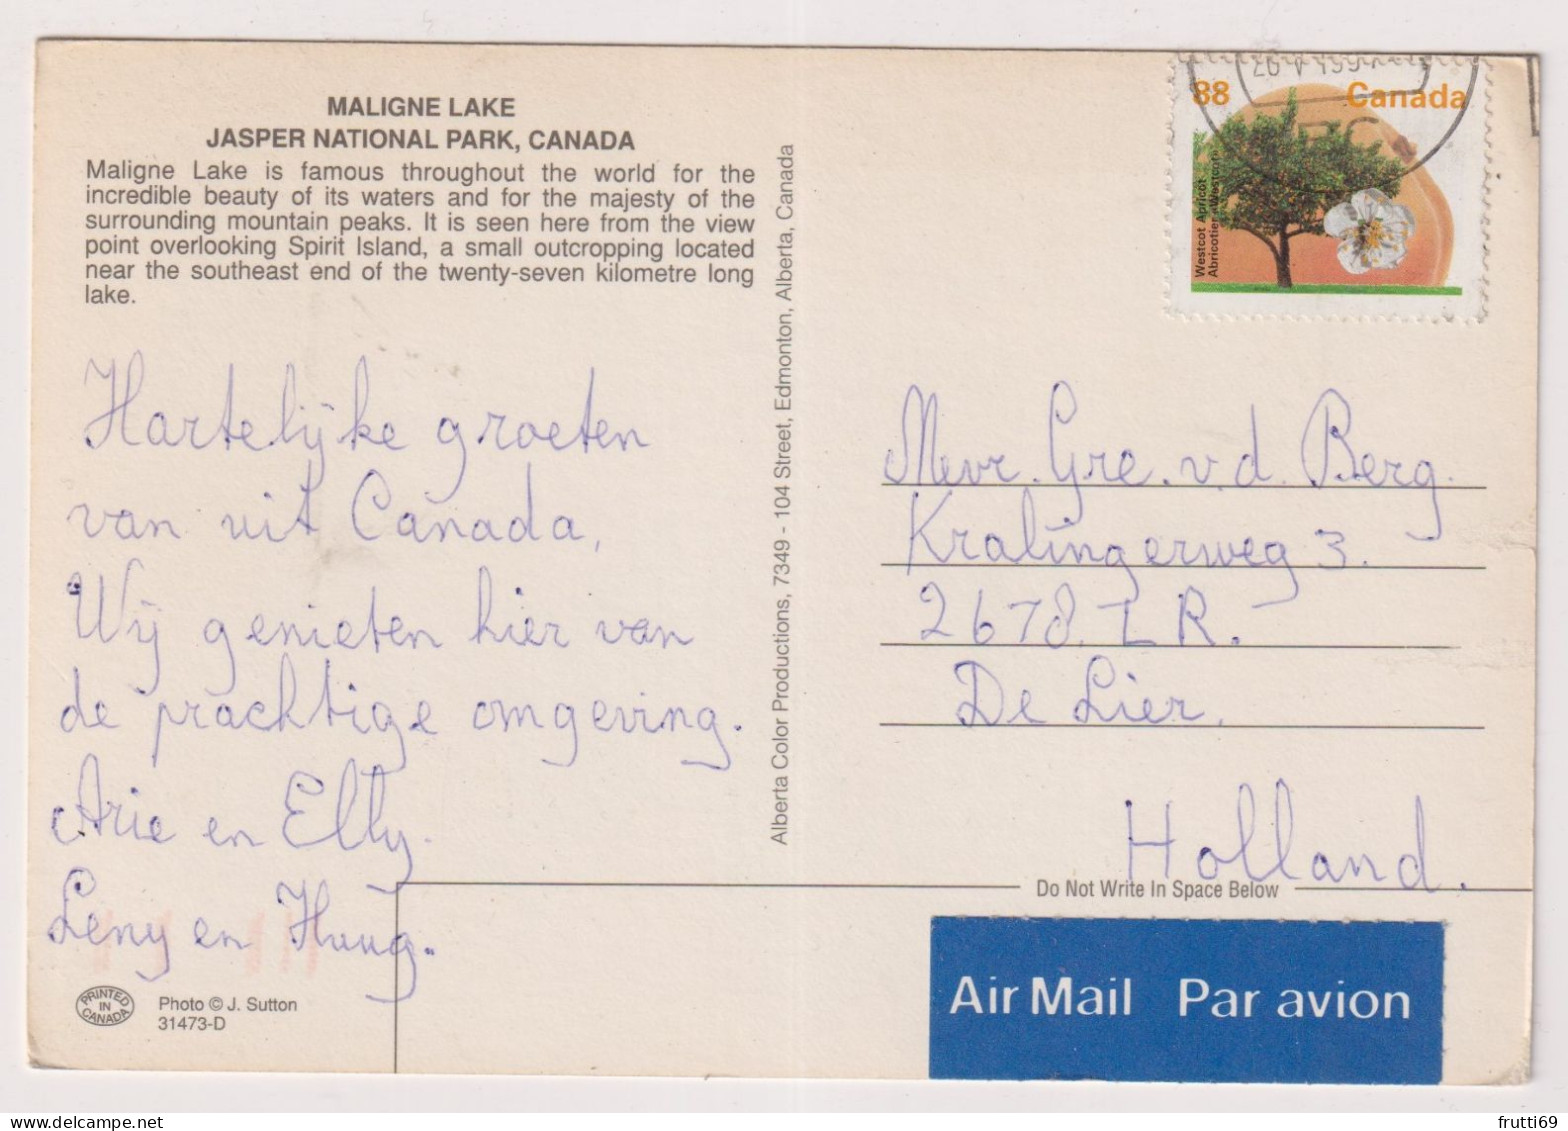 MALIGNE LAKE
JASPER NATIONAL PARK, CANADA
Maligne Lake is famous throughout the world for the
incredible beauty of its waters and for the majesty of the
surrounding mountain peaks. It is seen here from the view
point overlooking Spirit Island, a small outcropping located
near the southeast end of the twenty-seven kilometre long
lake.
Hartelijke groeten
van uit Canada,
Wij genieten hier van
de prachtige omgeving.
Arie en Elly.
Leny en Huug.
PRINTED
IN
CANADA
Photo © J. Sutton
31473-D
Alberta Color Productions, 7349 - 104 Street, Edmonton, Alberta, Canada
88 Canada
Westcot Apricot
Abricotier «Westcot»
Mevr. Gre. v. d. Berg.
Kralingerweg 3.
2678. LR.
De Lier.
Holland.
Do Not Write In Space Below
Air Mail Par avion
frutti69